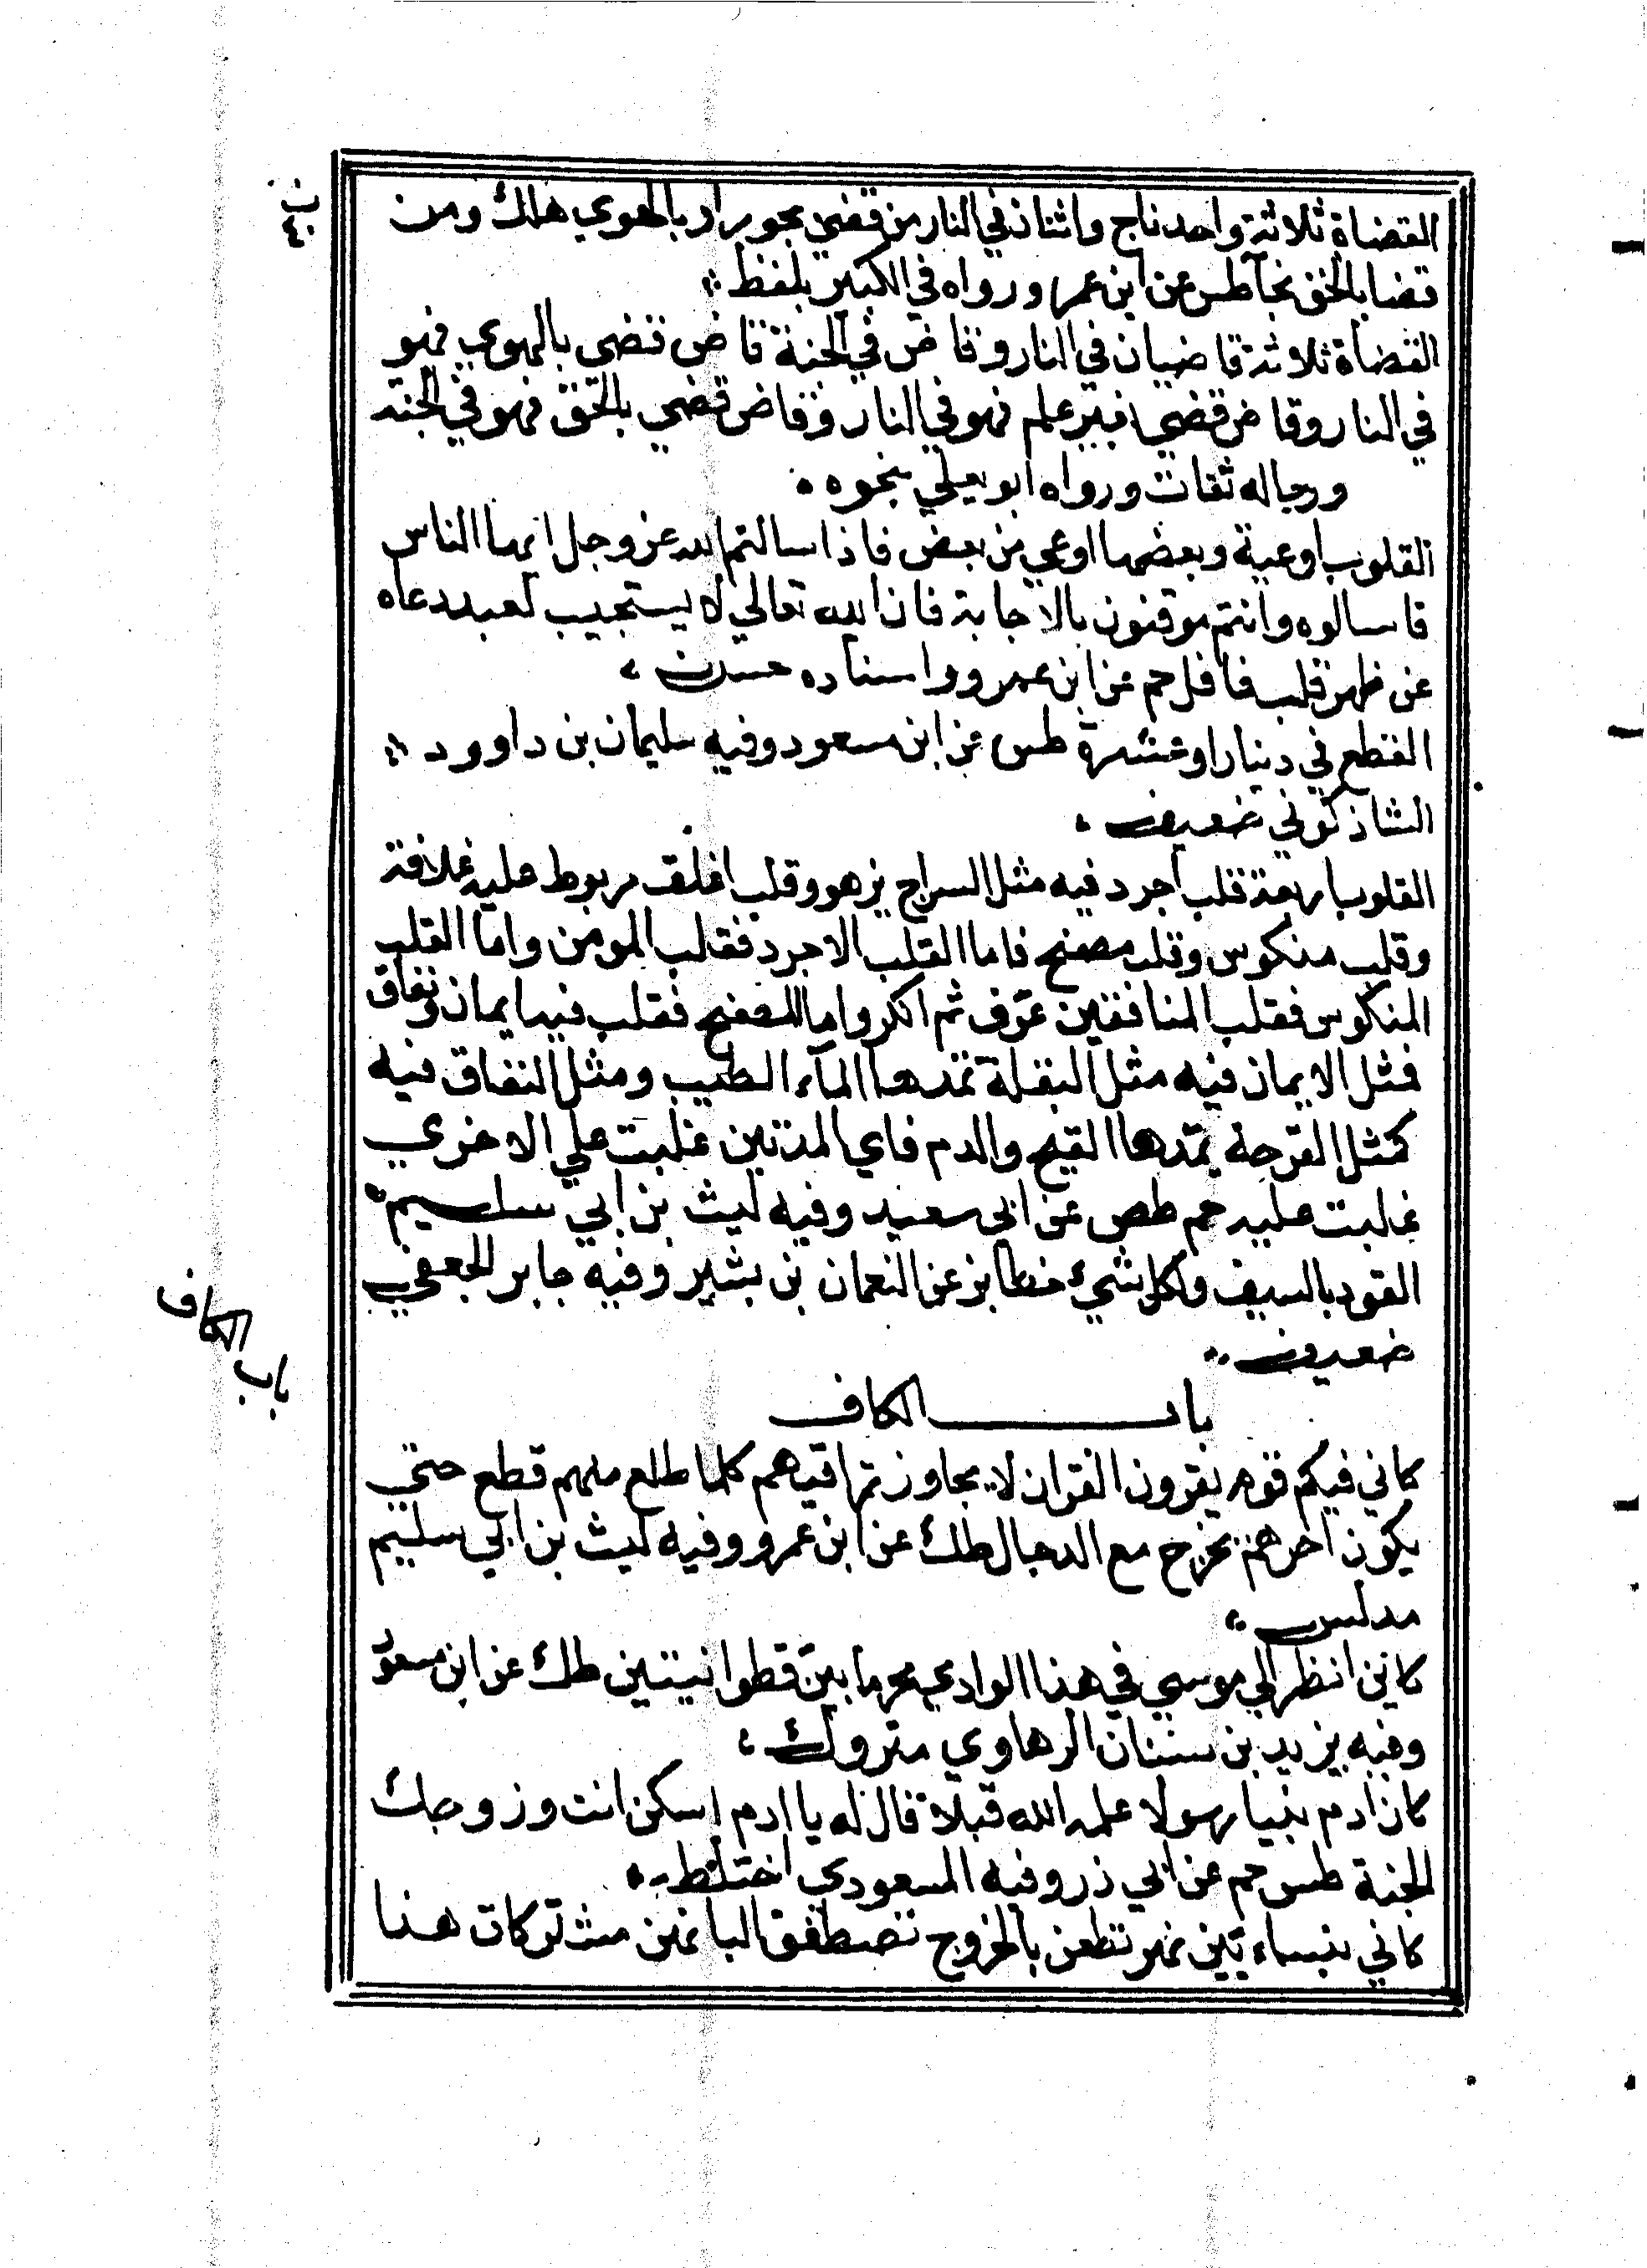 القضاة ثلاثة واحد ناج واثنان في النار من قضي بجور او بالهوي هلك ومن
قضا بالحق نجا طس عن ابن عمر ورواه في الكبير بلفظ
القضاة ثلاثة قاضيان في النار وقاض في الجنة قاض قضي بالهوي فهو
في النار وقاض قضي بغير علم فهو في النار وقاض قضي بالحق فهو في الجنة
ورجاله ثقات ورواه ابو يعلي بنحوه
القلوب اوعية وبعضها اوعي من بعض فاذا سالتم الله عز وجل ايها الناس
فاسالوه وانتم موقنون بالاجابة فان الله تعالي لا يستجيب لعبد دعاه
عن ظهر قلب غافل حم عن ابن عمرو واسناده حسن
القطع في دينار او عشرة طس عن ابن مسعود وفيه سليمان بن داوود
الشاذكوني ضعيف
القلوب اربعة قلب اجرد فيه مثل السراج يزهر وقلب اغلف مربوط عليه غلافة
وقلب منكوس وقلب مصفح فاما القلب الاجرد فقلب المومن واما القلب
المنكوس فقلب المنافقين عرف ثم انكر واما المصفح فقلب فيه ايمان ونفاق
فمثل الايمان فيه مثل البقلة تمدها الماء الطيب ومثل النفاق فيه
كمثل القرحة يمدها القيح والدم فاي المدتين غلبت علي الاخري
غالبت عليه حم طص عن ابي سعيد وفيه ليث بن ابي سليم
القود بالسيف ولكل شيء خطا بز عن النعمان بن بشير وفيه جابر الجعفي
ضعيف
باب الكاف
باب الكاف
كاني فيكم قوم يقرون القران لا يجاوز تراقيهم كلما طلع منهم قطع حتي
يكون اخرهم يخرج مع الدجال طك عن ابن عمرو وفيه ليث بن ابي سليم
مدلس
كاني انظر الي موسي في هذا الوادي محرما بين قطوانيتين طك عن ابن مسعود
وفيه يزيد بن سنان الرهاوي متروك
كان ادم نبيا رسولا علمه الله قبلا قال له يا ادم اسكن انت وزوجك
الجنة طس حم عن ابي ذر وفيه المسعودي اختلط
كاني بنساء بني فهر تطفن بالخزرج تصطفق الياتهن مشركات هذا